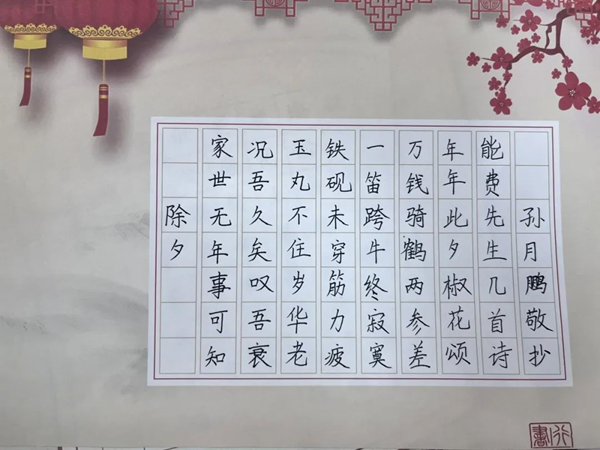 除夕
家世无年事可知
况吾久矣叹吾衰
玉丸不住岁华老
铁砚未穿筋力疲
一笛跨牛终寂寞
万钱骑鹤两参差
年年此夕椒花颂
能费先生几首诗
孙月鹏敬抄